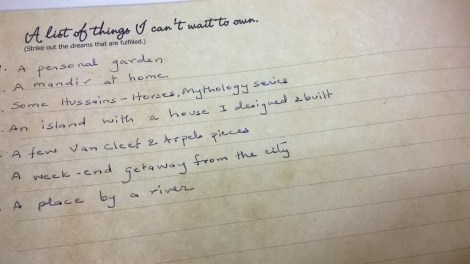 A list of things I can't wait to own.
(Strike out the dreams that are fulfilled.)
. A personal garden
. A mandir at home
. Some Hussains - Horses, Mythology series
. An island with a house I designed & built
. A few Van Cleef & Arpels pieces
A week-end getaway from the city
. A place by a river